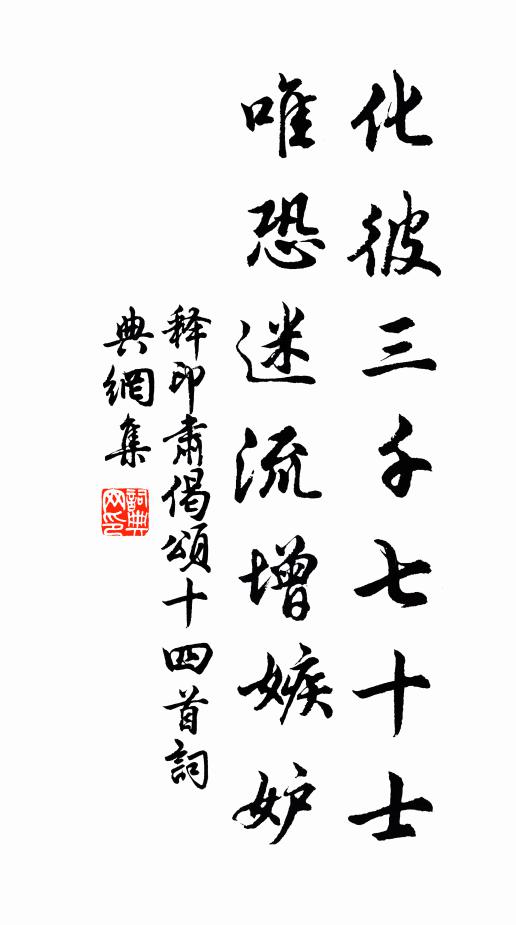 化彼三千七十士
唯恐迷流增嫉妒
释印肃偈頌十四首詞
典網集
詞典网印